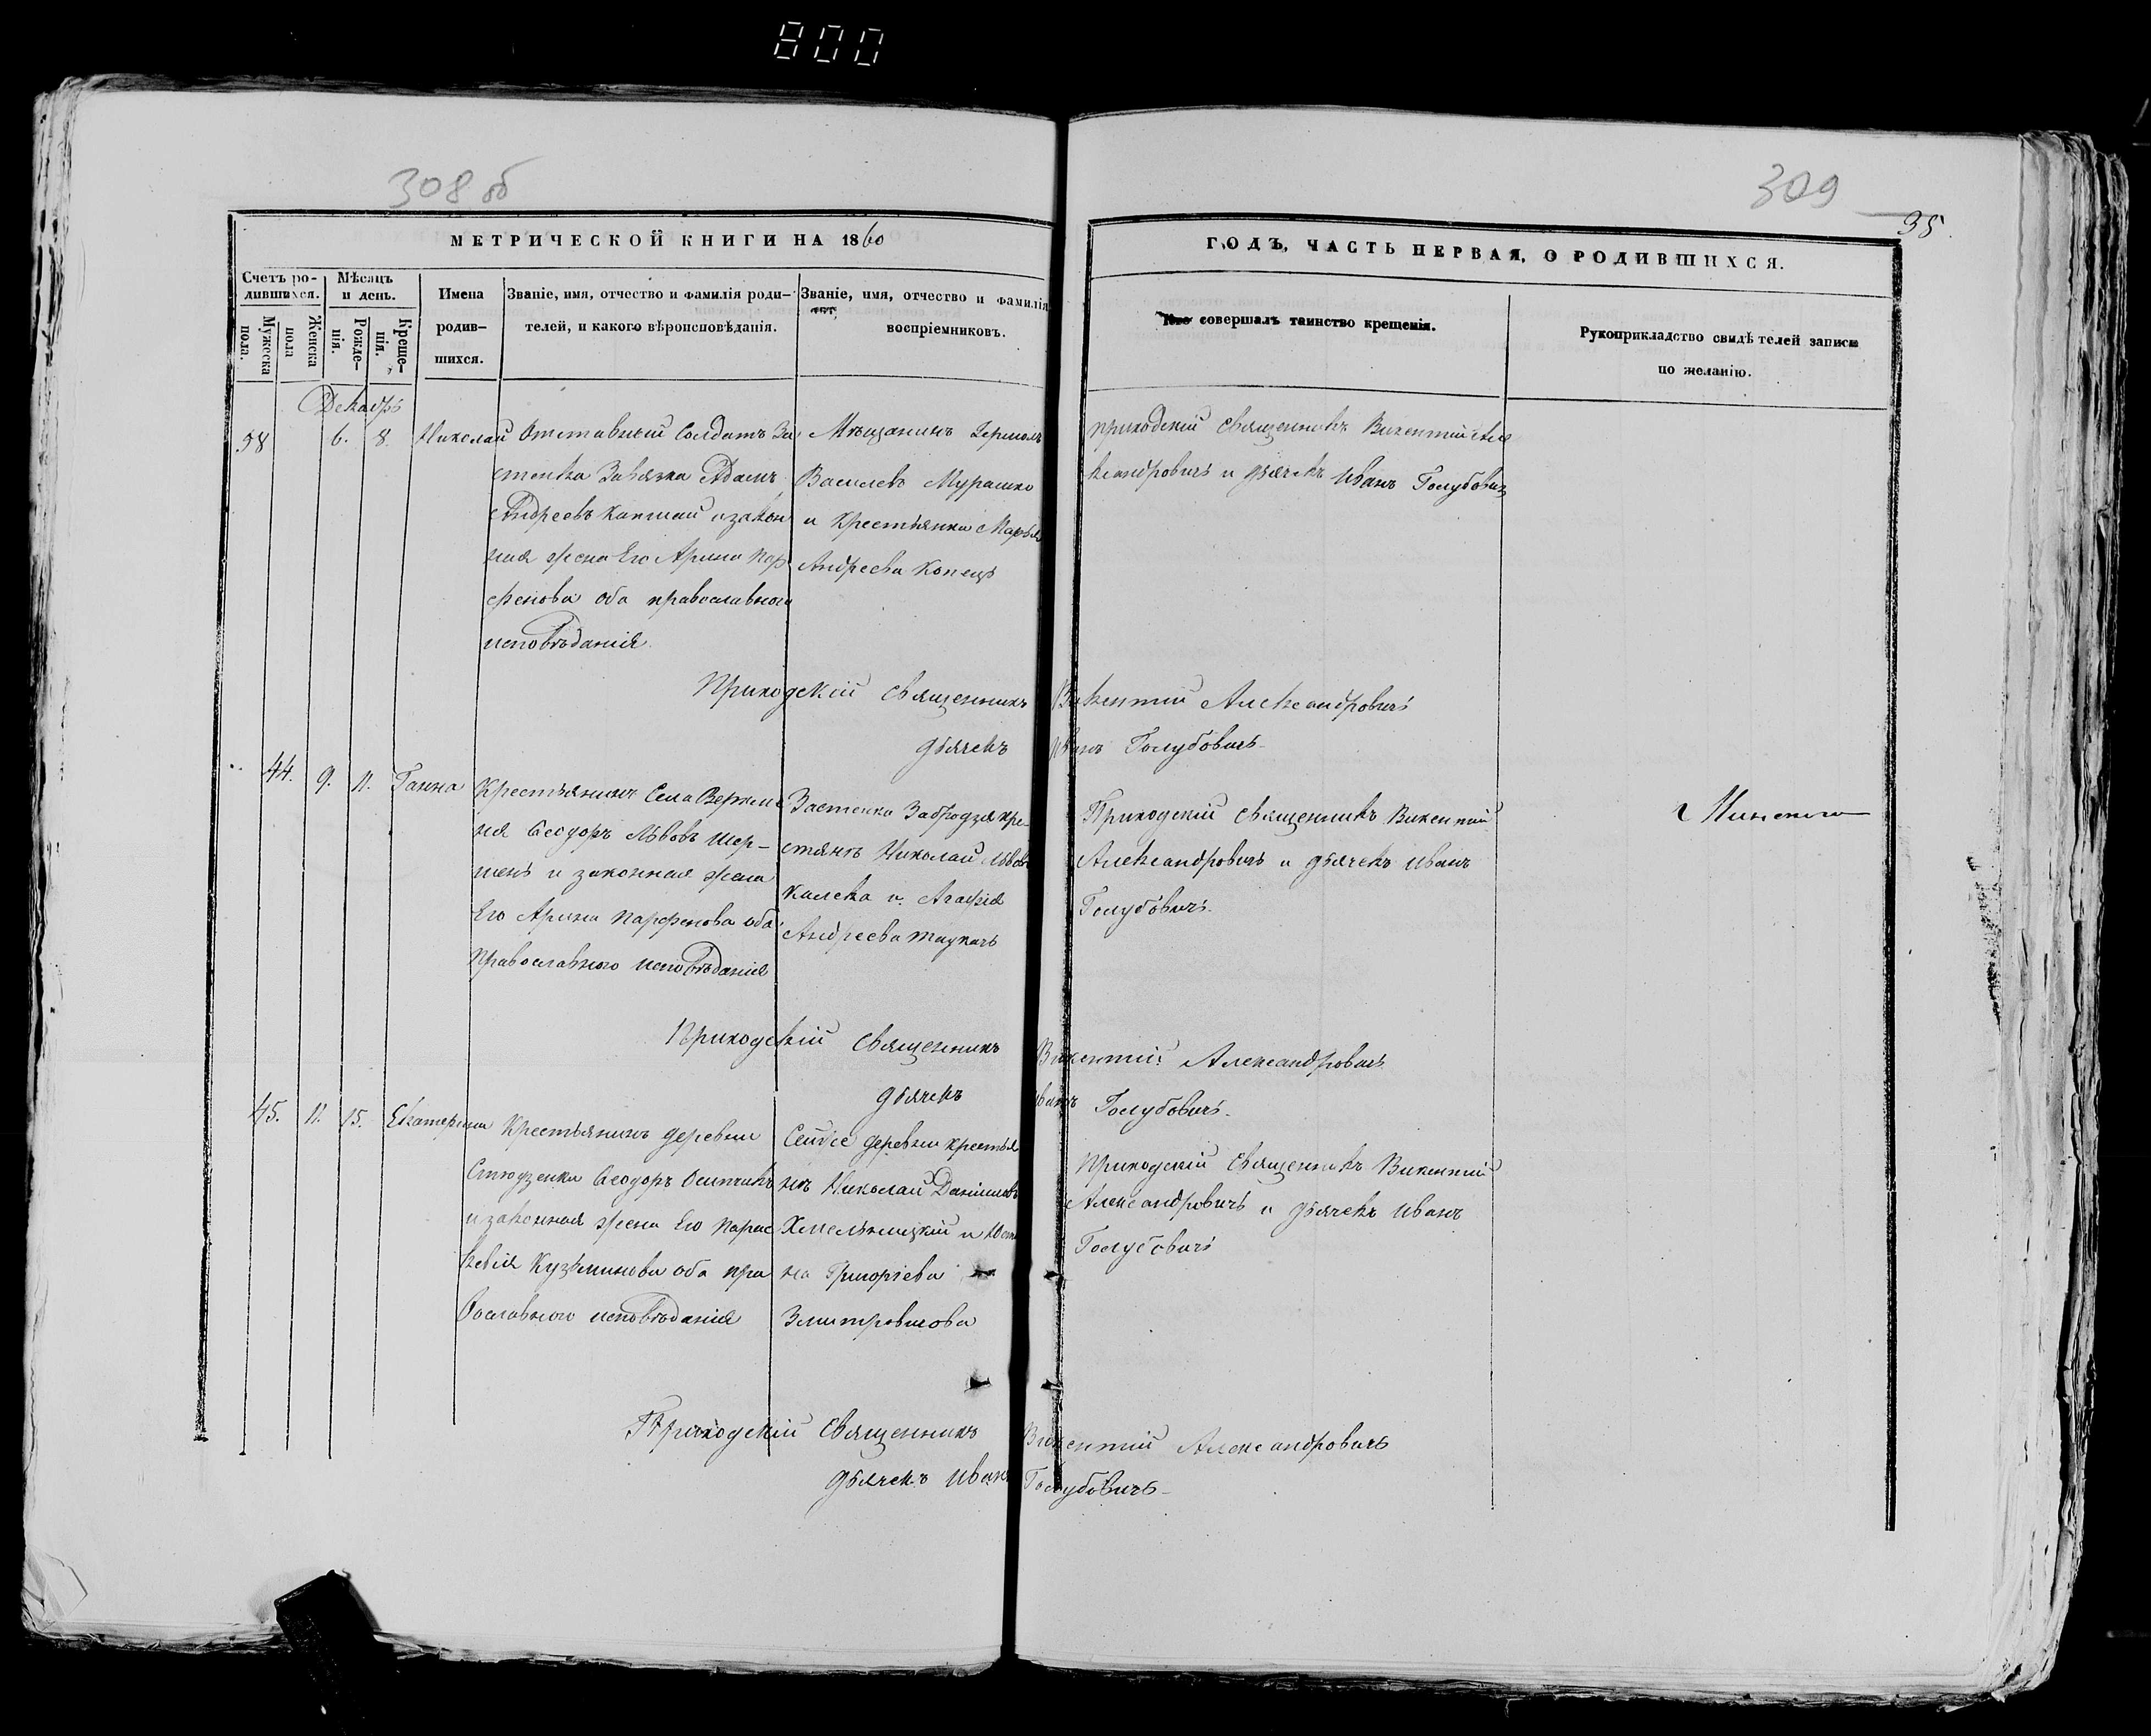 800
308 об
309
35.
МЕТРИЧЕСКОЙ КНИГИ НА 1860
ГОДЪ, ЧАСТЬ ПЕРВАЯ, О РОДИВШИХСЯ.
Счетъ ро-
дившихся.
Мужеска
пола.
Женска
пола
Мѣсяцъ
и день.
Рожде-
нія.
Креще-
нія.
Имена
родив-
шихся.
Званіе, имя, отчество и фамилія роди-
телей, и какого вѣроисповѣданія.
Званіе, имя, отчество и фамилія
воспріемниковъ.
Кто совершалъ таинство крещенія.
Рукоприкладство свидѣтелей записи
по желанію.
Декабрь
38
6.
8.
Николай
Отставный Солдатъ За
стенка Завязка Адамъ
Андреевъ Капшай и закон
ная жена Его Арина Пар
фенова оба православнаго
исповѣданія.
Мѣщанинъ Гермолъ
Василевъ Мурашко
и Крестьянка Марья
Андреева Копецъ
приходскій Священникъ Викентій Але
ксандровичъ и дьячекъ Иванъ Голубович
Приходскій Священникъ Викентій Александровичъ
дьячекъ Иванъ Голубовичъ
44.
9.
11.
Ганна
Крестьянинъ Села
ня Ѳеодоръ Львовъ Шер-
шень и законная жена
Его Арина Парфенова оба
Православнаго исповѣданія
Застенка Забродзя кре-
стянъ Николай Львов
Калека и Агафія
Андреева Ткачъ
Приходскій Священникъ Викентій
Александровичъ и дьячекъ Иванъ
Голубовичъ.
Приходскій Священникъ Викентій Александровичъ
дьячекъ Иванъ Голубовичъ.
45.
11.
15.
Екатерина
Крестьянинъ деревни
Стюдзенки Ѳеодоръ Осипчикъ
и законная жена Его Парас
кевія Кузьминова оба пра
вославнаго исповѣданія
Сейбсе деревни крестья
нъ Николай Даниловъ
Хмельницкій и Юсти
на Григоріева
Змитровичова
Приходскій Священникъ Викентій
Александровичъ и дьячекъ Иванъ
Голубовичъ
Приходскій Священникъ Викентій Александровичъ
дьячекъ Иванъ Голубовичъ